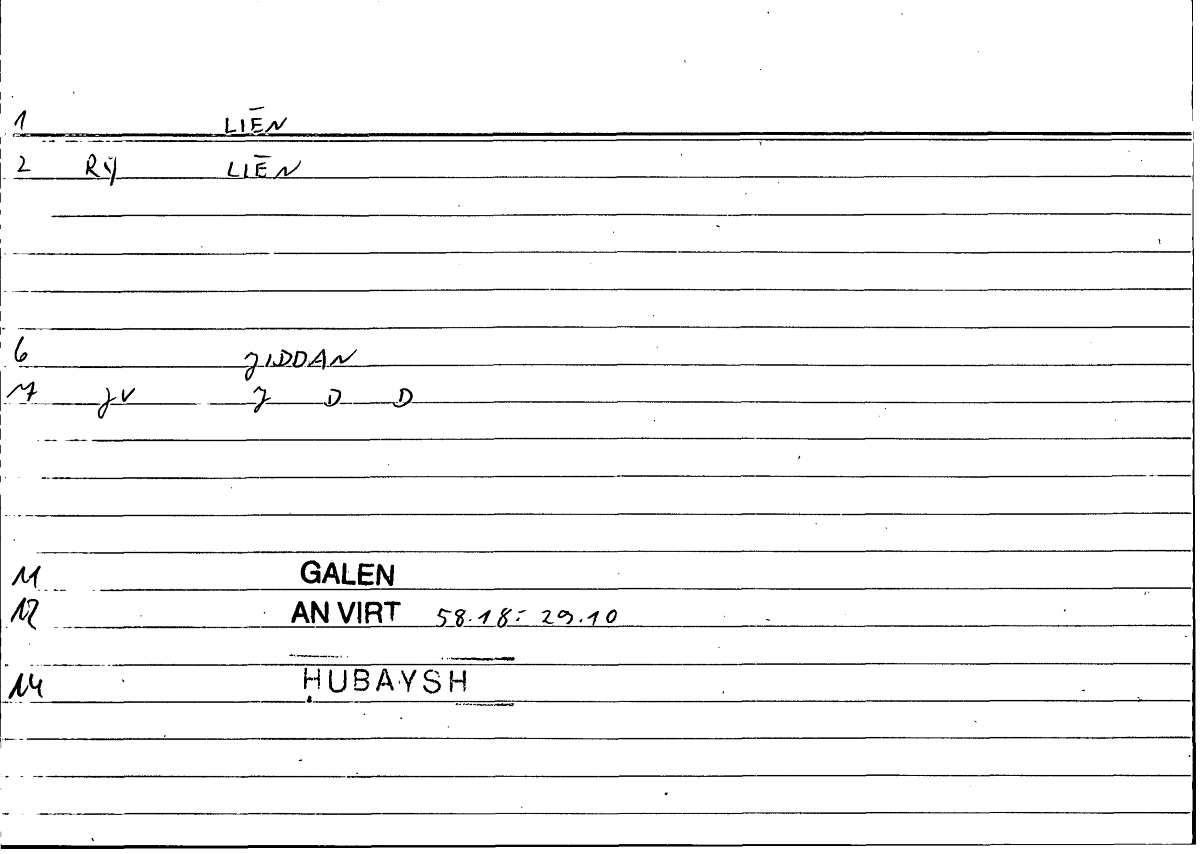 1 LIĒN
2 Rÿ LIĒN
6 ȷIDDAN
7 ȷV ȷ D D
11 GALEN
12 AN VIRT 58.18: 29.10
14 ḤUBAYSH